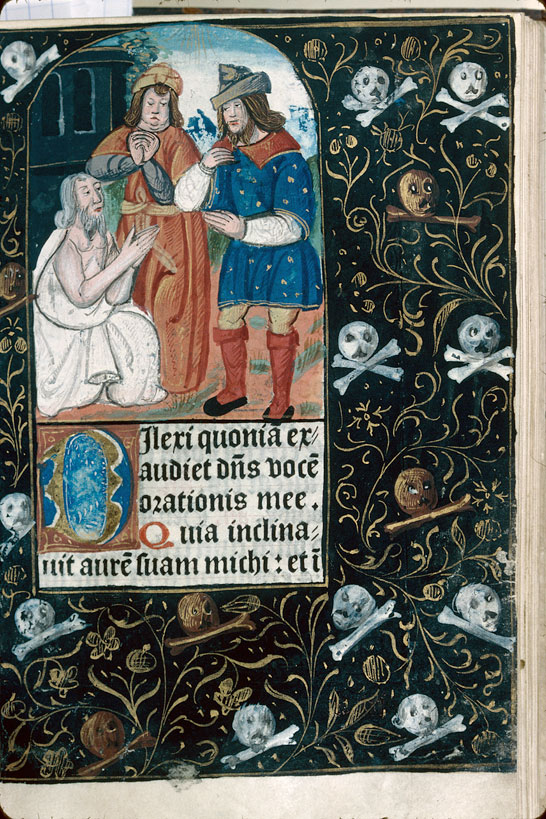 Dilexi quoniā ex⸗
audiet dn̄s vocē
orationis mee .
Quia inclina⸗
uit aurē suam michi : et ī